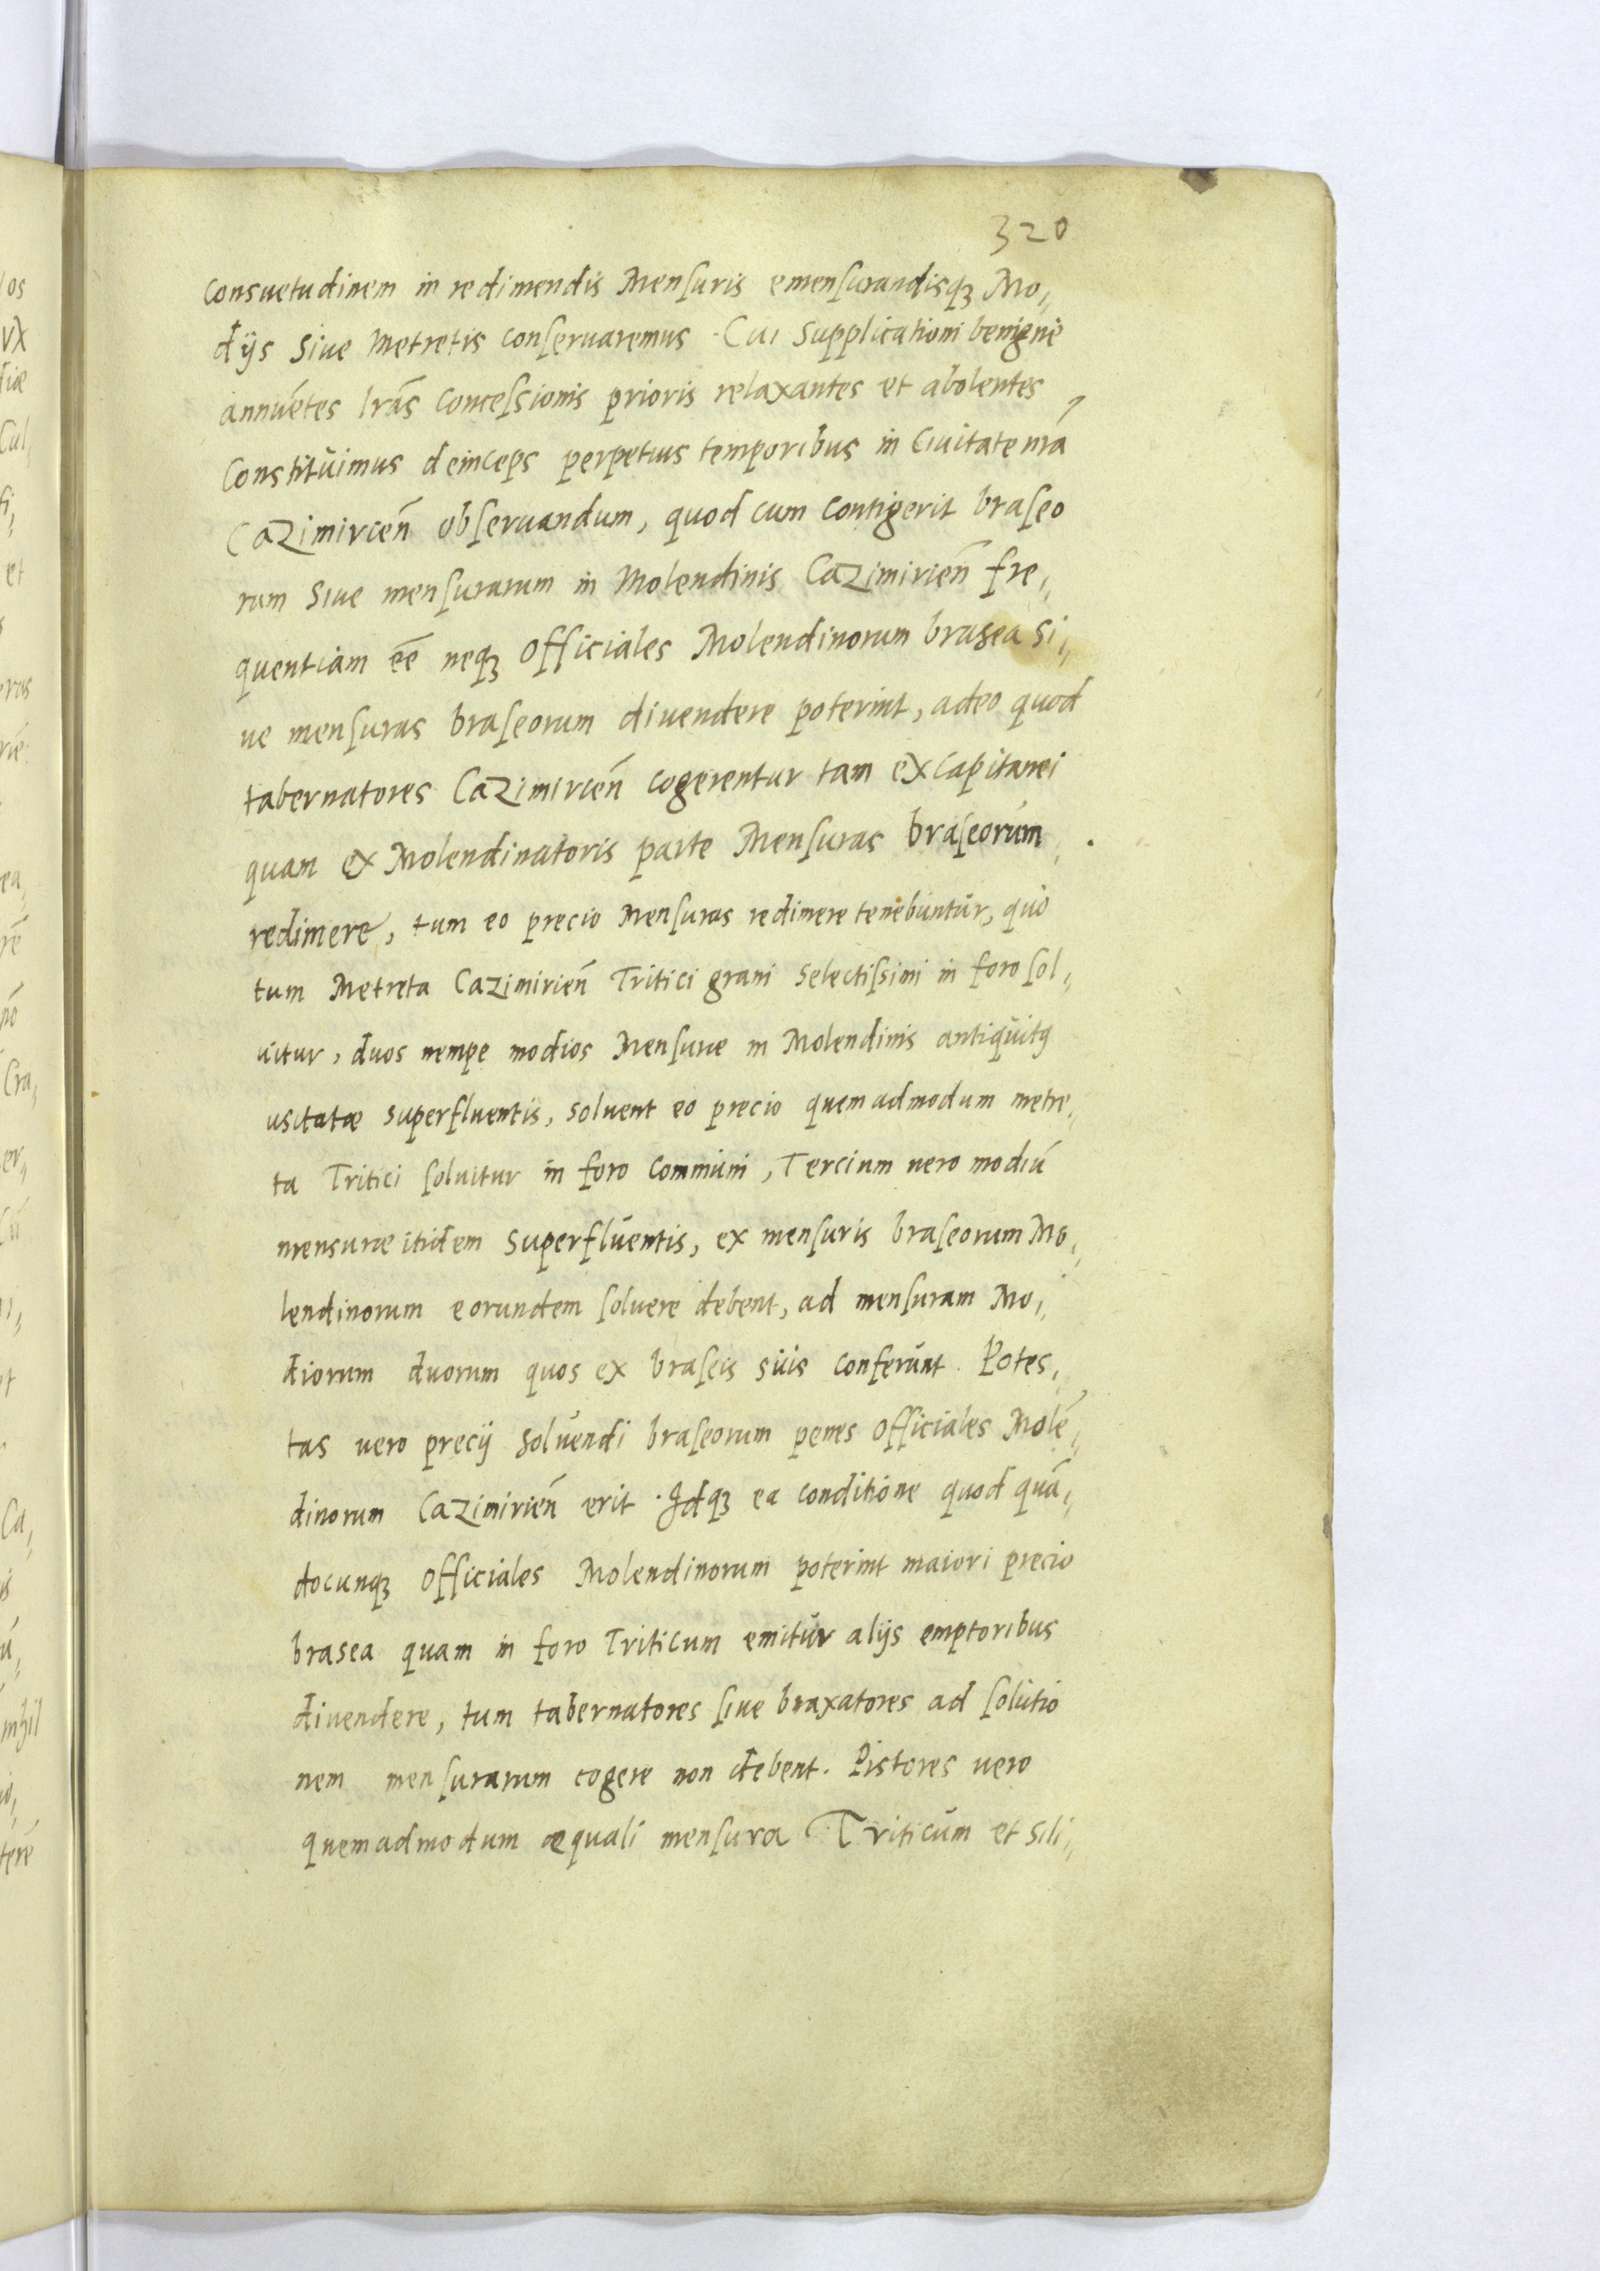 320
consuetudinem in redimendis Mensuris emensurandisqꝫ Mo,
dijs Siue Metretis conseruaremus. Cui Supplicationi benignè
annuētes lrās Concessionis prioris relaxantes et abolentes
Constituimus deinceps perpetuis temporibus in Ciuitate nrā
Cazimirieñ obseruandum, quod cum Contigerit braseo
rum Siue mensurarum in Molendinis Cazimirieñ fre,
quentiam eē neqꝫ Officiales Molendinorum brasea Si,
ue mensuras braseorum diuendere poterint, adeo quod
tabernatores Cazimirieñ cogerentur tam ex Capitanei
quam ex Molendinatoris parte Mensuras braseorum
redimere, tum eo precio Mensuras redimere tenebuntur, quo
tum Metreta Cazimirieñ Tritici grani Selectissimi in foro sol,
uitur, duos nempe modios Mensurae in Molendinis antiquitꝰ
usitatae superfluentis, soluent eo precio quemadmodum metre,
ta Tritici soluitur in foro Communi, Tercium uero modiū
mensurae itidem Superfluentis, ex mensuris braseorum Mo,
lendinorum eorundem soluere debent, ad mensuram Mo,
diorum duorum quos ex braseis suis conferunt. Potes,
tas uero precij Soluendi braseorum penes Officiales Molē,
dinorum Cazimirieñ erit. Idqꝫ ea conditione quod quā,
docunqꝫ Officiales Molendinorum poterint maiori precio
brasea quam in foro Triticum emitur alijs emptoribus
diuendere, tum tabernatores siue braxatores ad solutio
nem mensurarum cogere non debent. Pistores uero
quemadmodum aequali mensura Triticum et Sili,